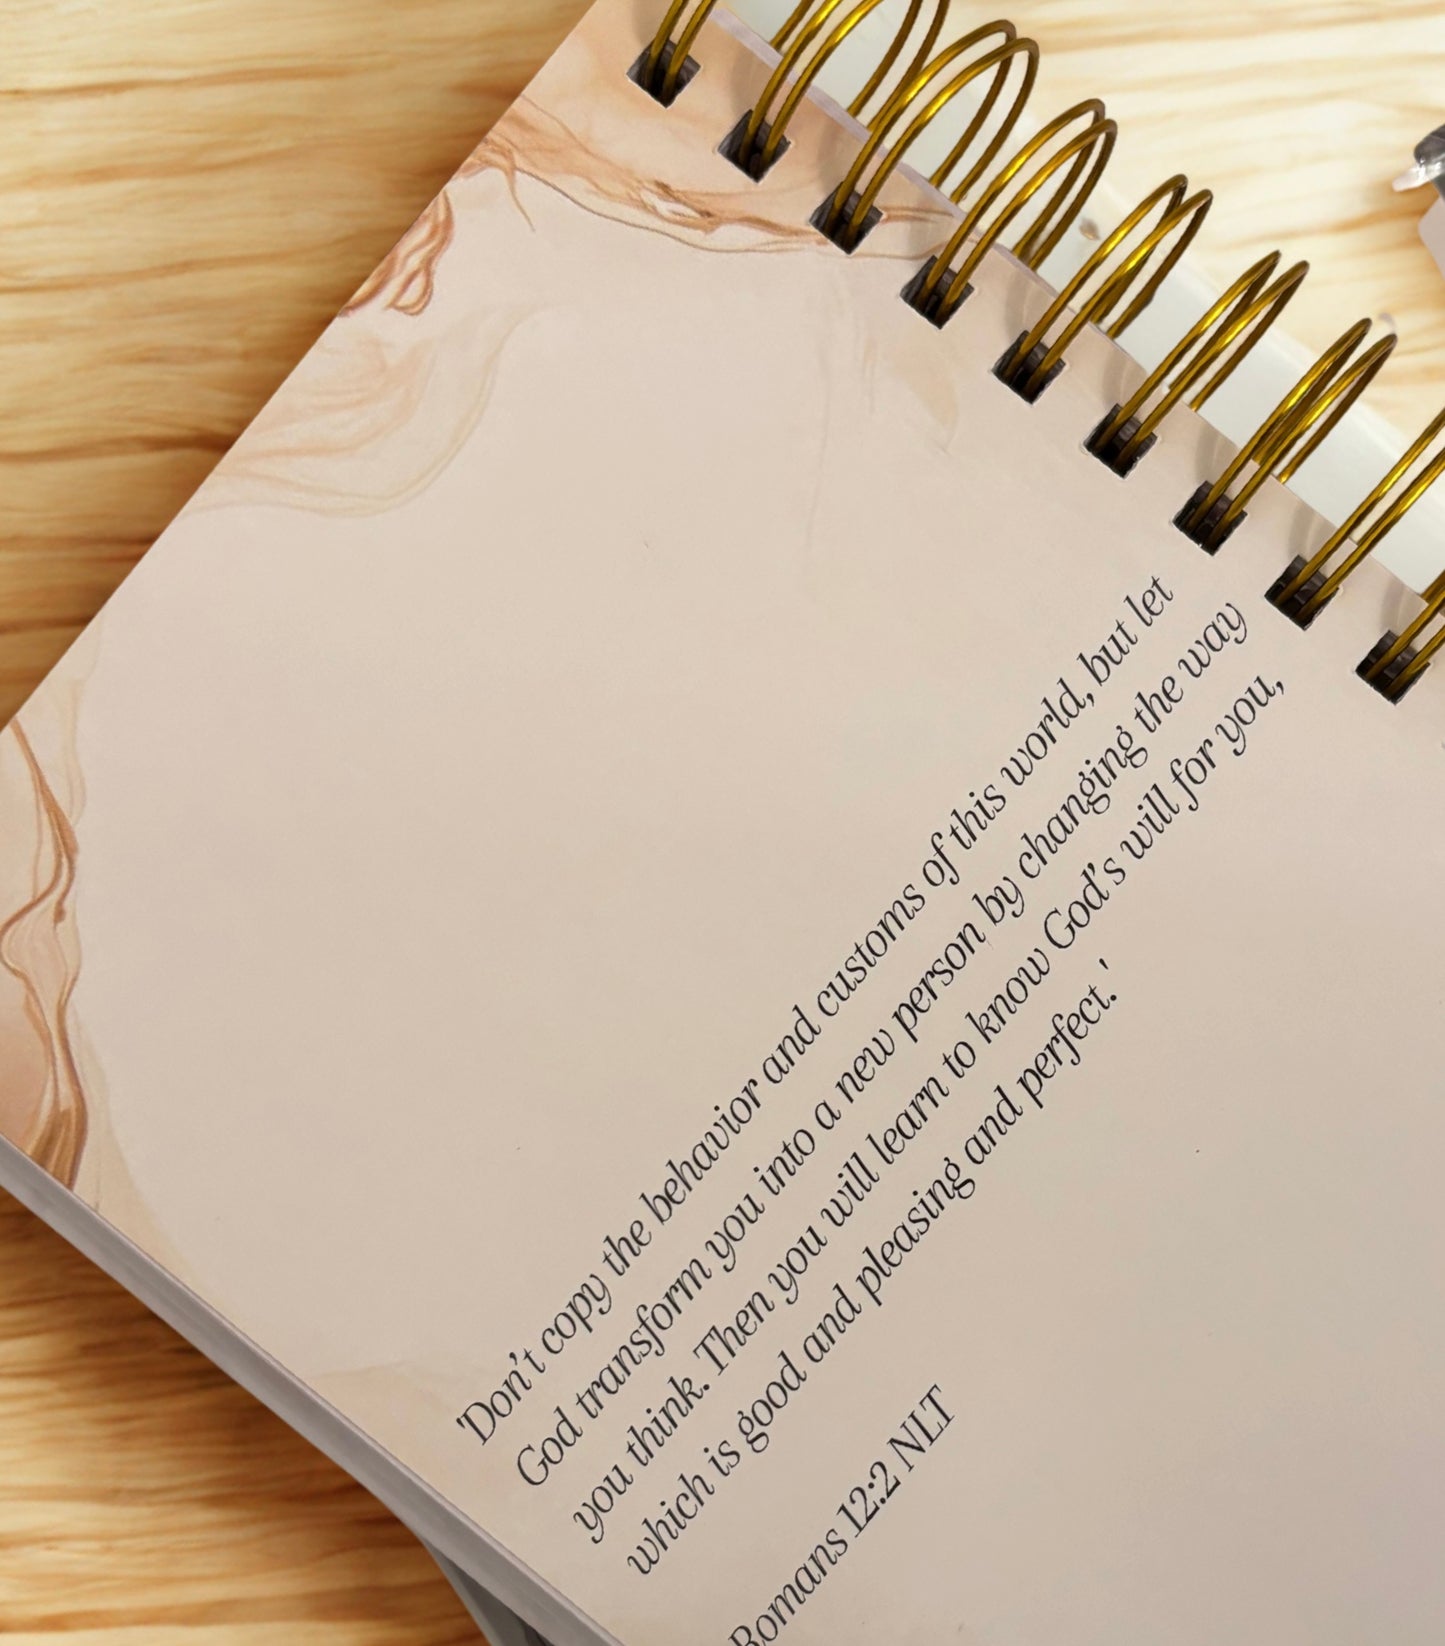 'Don't copy the behavior and customs of this world, but let
God transform you into a new person by changing the way
you think. Then you will learn to know God's will for you,
which is good and pleasing and perfect.'
Romans 12:2 NLT